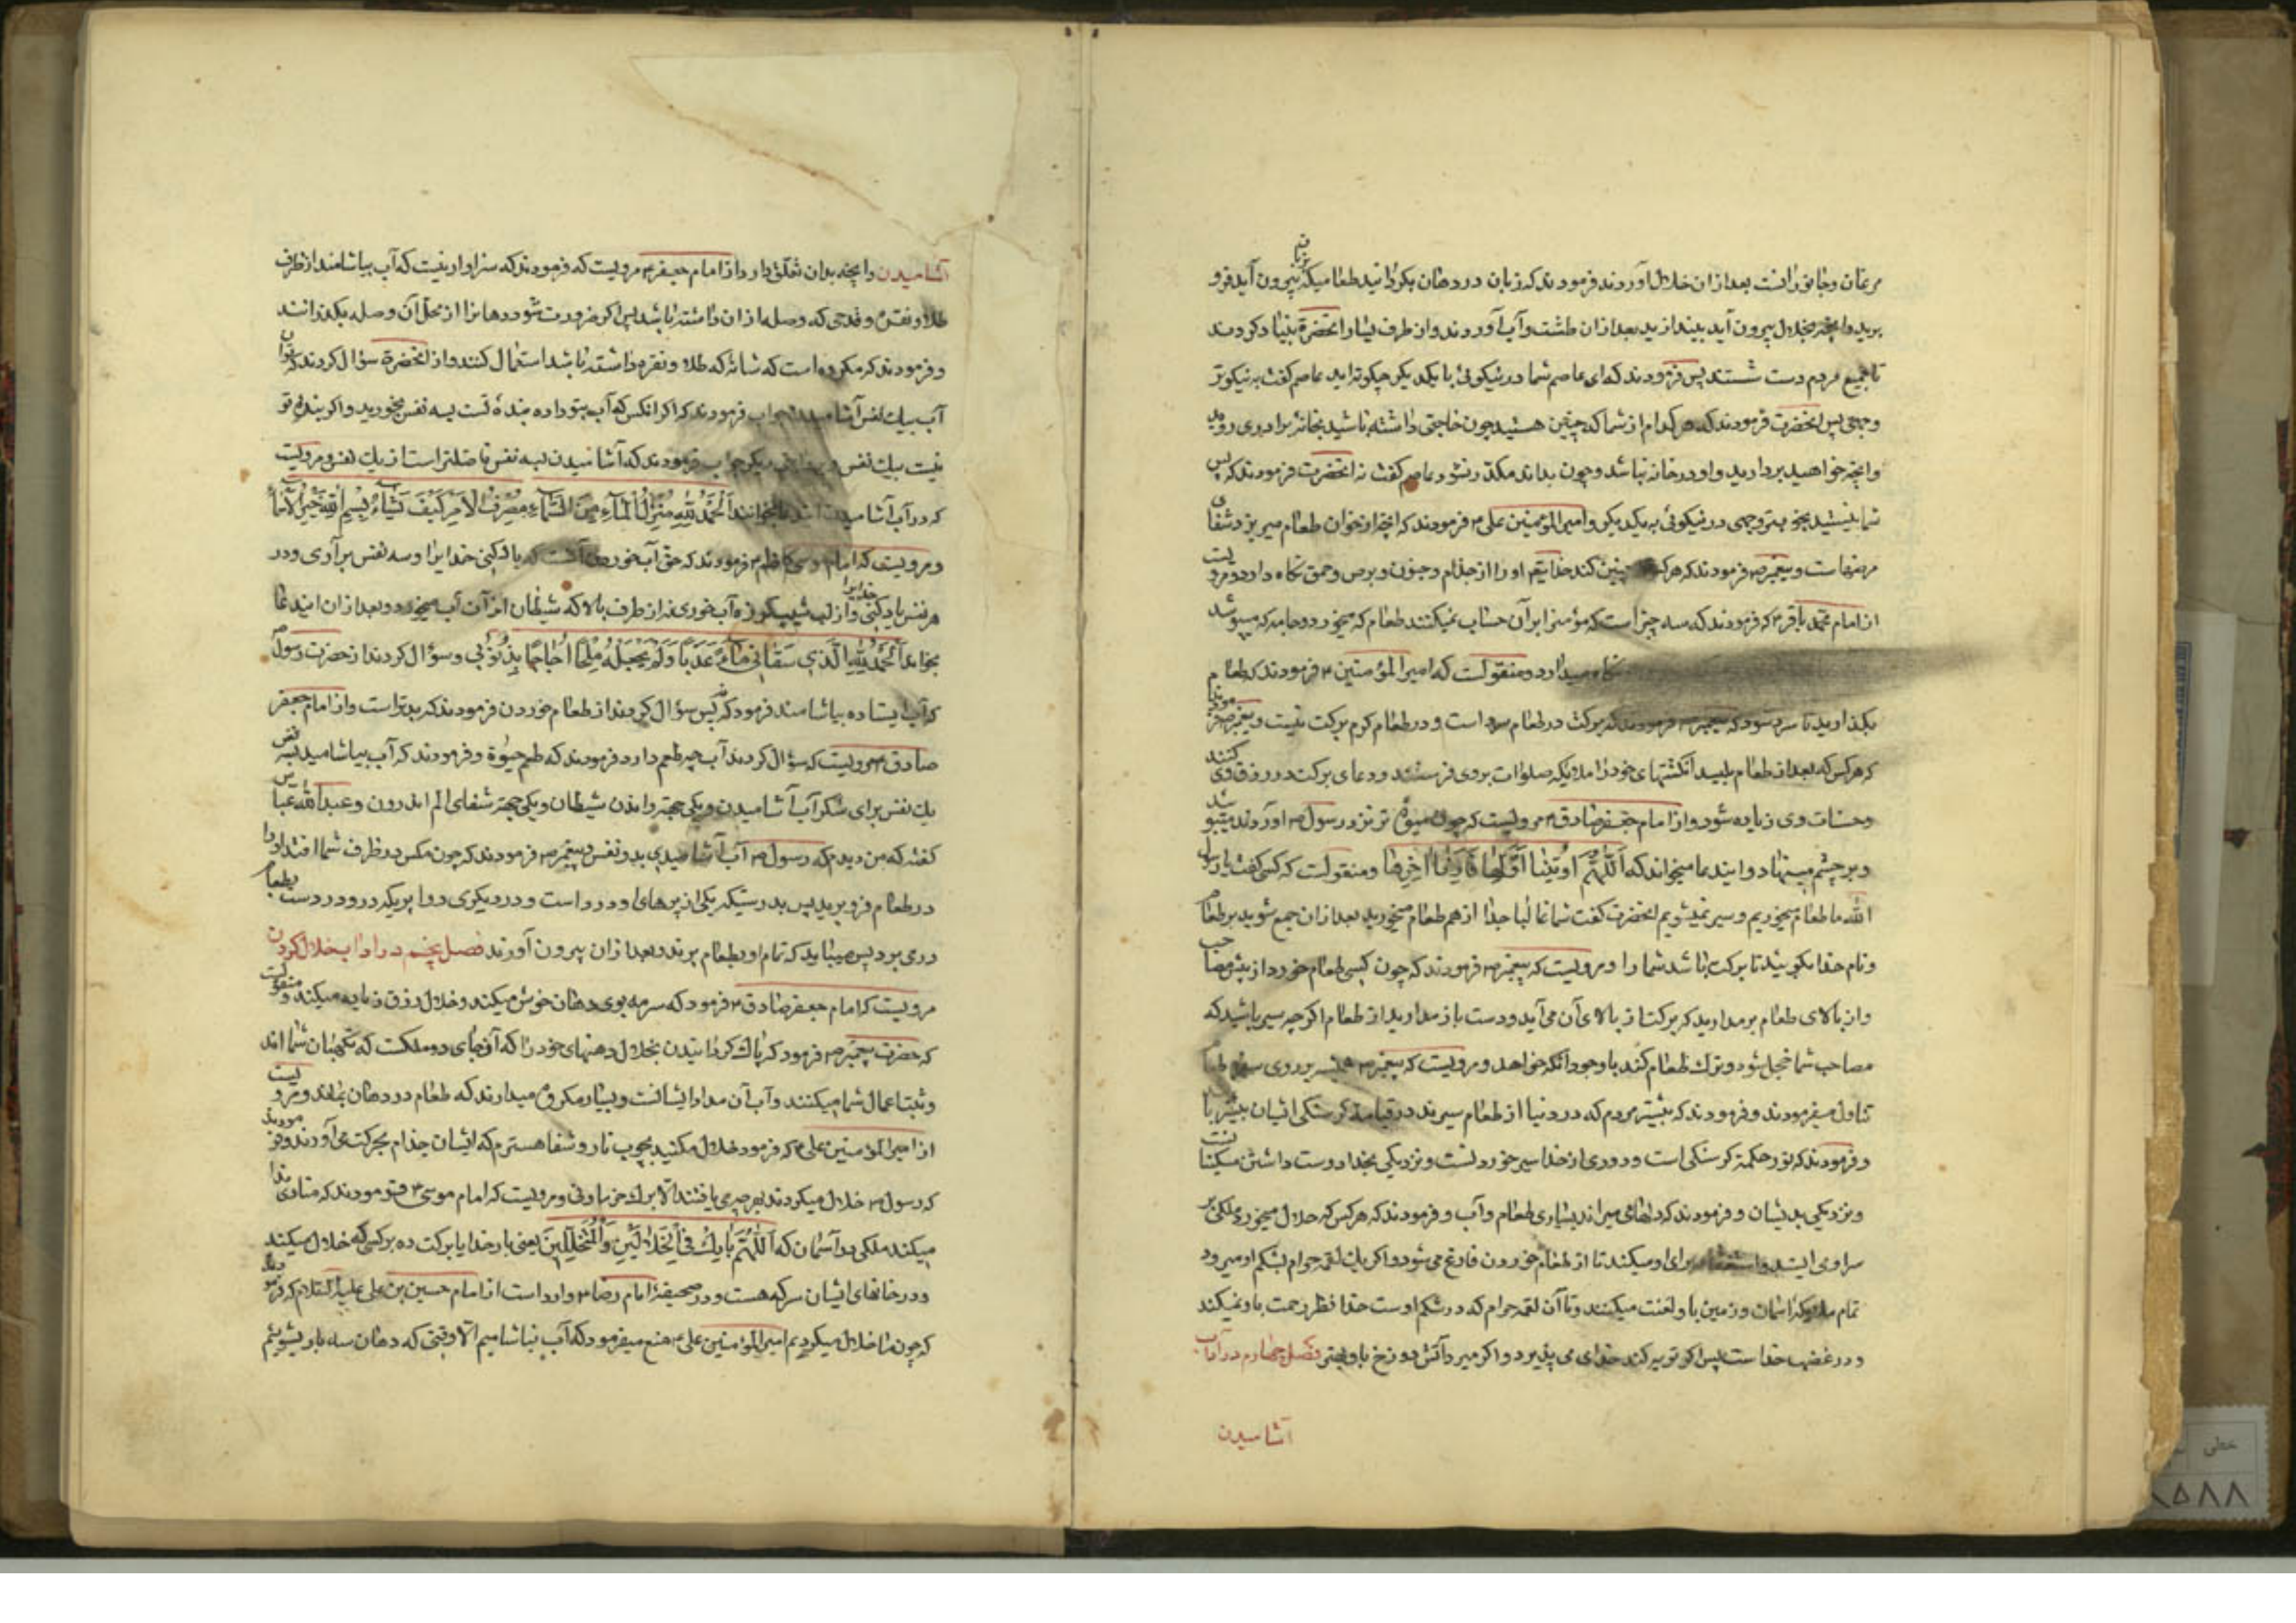 مرغان و جانورانست بعد از ان خلال آوردند فرمودند که زبان در دهان بگردانید طعامیکه بزبان بیرون آید فرو
برید و آنچه بخلال بیرون آید بیندازید بعد از ان طشت و آب آوردند و از طرف یسار انحضرة بنیاد کردند
تا جمیع مردم دست شستند پس فرمودند که ای عاصم شما در نیکوئی با یکدیگر چگونه اید عاصم گفت به نیکوتر
وجهی پس انحضرت فرمودند که هر کدام از شما که چنین هستید چون حاجتی داشته باشید بخانه برادری روید
و آنچه خواهید بردارید و او در خانه نباشد و چون بداند مکدر نشود عاصم گفت نه انحضرت فرمودند که پس
شما نیستید بخوبترین وجهی در نیکوئی به یکدیگر و امیر المؤمنین علی فرمودند که آنچه از خوان طعام میریزد شفای
مرضهاست و پیغمبر ص فرمودند که هر که چنین کند خدایتعم او را از جذام و جنون و برص و حمق نگاه دارد و مرویست
از امام محمد باقر م که فرمودند که سه چیز است که مؤمنرا بر آن حساب نمیکنند طعام که میخورد و جامه که میپوشد
نگاه میدارد و منقولست که امیر المؤمنین م فرمودند که طعام
بگذارید تا سرد شود که پیغمبر ص فرمودند که برکت در طعام سرد است و در طعام گرم برکت نیست و پیغمبر ص فرمودند
که هر کس که بعد از طعام بلیسد انگشتهای خود را ملایکه صلوات بروی فرستند و دعای برکت در رزق وی کنند
و حسنات وی زیاده شود و از امام جعفر صادق م مرویست که چون میوهٔ تر نزد رسول ص آوردند میبوسید
و بر چشم مینهاد و ایندعا میخواند که اللهم اریتنا اولها فارنا اخرها و منقولست که کسی گفت یا رسول
الله ما طعام میخوریم و سیر نمیشویم انحضرت گفت شما غالبا جدا از هم طعام میخورید بعد از ان جمع شوید بر طعام
و نام خدا بگویید تا برکت باشد شما را و مرویست که پیغمبر ص فرمودند که چون کسی طعام خورد از پیش مصاحب
و از بالای طعام برمدارید که برکت از بالای آن می آید و دست باز مدارید از طعام اگرچه سیر باشید که
مصاحب شما خجل شود و ترک طعام کند با وجود آنکه خواهد و مرویست که پیغمبر ص همیشه بر روی سفره طعام
تناول میفرمودند و فرمودند که بیشتر مردم که در دنیا از طعام سیرند در قیامت گرسنگی ایشان بیشتر باشد
و فرمودند که نور حکمة گرسنگی است و دوری از خدا سیر خوردنست و نزدیکی بخدا دوست داشتن مسکینانست
و نزدیکی بدیشان و فرمودند که دلها می میراند بسیاری طعام و آب و فرمودند که هر کس که حلال میخورد ملکی بر
سر او می ایستد و استغفار برای او میکند تا از طعام خوردن فارغ می شود و اگر یک لقمه حرام بشکم او میرود
تمام ملایکه اسمان و زمین باو لعنت میکنند و تا آن لقمه حرام که در شکم اوست خدا نظر رحمت باو نمیکند
و در غضب خداست پس اگر توبه کند خدای می پذیرد و اگر میرد آتش دوزخ باو بهتر فصل چهارم در آداب
آشامیدن
آشامیدن و آنچه بدان تعلق دارد از امام جعفر م مرویست که فرمودند که سزاوار نیست که آب بیاشامند از ظرف
طلا و نقره و قدحی که وصله از ان داشته باشد پس اگر ضرورت شود دهانرا از محل آن وصله بگذرانند
و فرمودند که مکروه است که شانه که طلا و نقره داشته باشد استعمال کنند و از انحضرة سؤال کردند که توان
آب بیک نفس آشامیدن جواب فرمودند که اگر انکس که آب بتو داده بندهٔ تست بسه نفس بخورید و اگر بندهٔ تو
نیست بیک نفس و دیگر جواب فرمودند که آشامیدن بسه نفس فاضلتر است از یک نفس و مرویست
که در آب آشامیدن بخوانند الحمد لله منزل الماء من السماء مصرف الامر کیف یشاء بسم الله خیر الاسماء
و مرویست که امام موسی کاظم م فرمودند که حق آب خوردن آنست که یاد کنی خدایرا و سه نفس برآوری و در
هر نفس یاد کنی خدایرا و از لب شیب کوزه آب خوری نه از طرف بالا که شیطان از آن آب میخورد و بعد از ان ایندعا
بخواند الحمد لله الذی سقانی ماء عذبا و لم یجعله ملحا اجاجا بذنوبی و سؤال کردند از حضرت رسول ص
که آب ایستاده بیاشامند فرمود که نه پس سؤال کردند از طعام خوردن فرمودند که بدتر است و از امام جعفر
صادق م مرویست که سؤال کردند آب چه طعم دارد فرمودند که طعم حیوة و فرمودند که آب بیاشامید بسه نفس
یک نفس برای شکر آب آشامیدن و یکی جهة راندن شیطان و یکی جهة شفای الم اندرون و عبد الله عباس
گفته که من دیدم که رسول ص آب آشامیدی بدو نفس و پیغمبر ص فرمودند که چون مگس در ظرف شما افتد او را
در طعام فرو برید پس بدرستیکه یکی از پرهای او درد است و در دیگری دوا پریکه درو درد است بطعام
دری برد پس میباید که تمام او بطعام برند و بعد از ان بیرون آورند فصل پنجم در آداب خلال کردن
مرویست که امام جعفر صادق م فرمود که سرمه بوی دهان خوش میکند و خلال رزق زیاده میکند و منقولست
که حضرت پیغمبر ص فرمود که پاک گردانیدن بخلال دهنهای خود را که آن جای دو ملکست که نگهبان شما اند
و ثبت اعمال شما میکنند و آب آن مداد ایشانست و بسیار مکروه میدارند که طعام در دهان بماند و مرویست
از امیر المؤمنین علی م که فرمود خلال مکنید بچوب نار و شفاهسترم که ایشان جذام بحرکت می آورند و فرمودند
که رسول ص خلال میکردند بهر چیزی یافتند الا برک خرما و نی و مرویست که امام موسی م فرمودند که منادی ندا
میکند ملکی در آسمان که اللهم بارک فی الخلالین و المتخللین یعنی بار خدایا برکت ده بر کسی که خلال میکند
و در خانهای ایشان سرکه هست و در صحیفه امام رضا م وارد است از امام حسین بن علی علیه السلام که فرمود
که چون ما خلال میکردیم امیر المؤمنین علی م منع میفرمود که آب نیاشامیم الا وقتی که دهان سه بار بشوییم